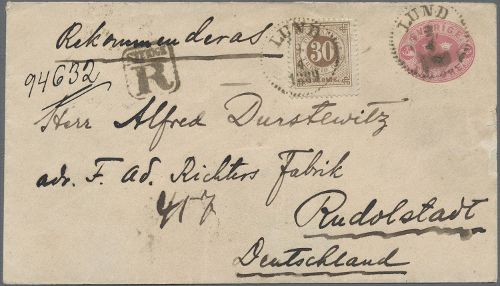 Rekommenderas
LUND
4
1889
30
LUND
SVERIGE
94632
R
Herr Alfred Durstewitz
adr. F. Ad. Richters Fabrik
417
Rudolstadt
Deutschland